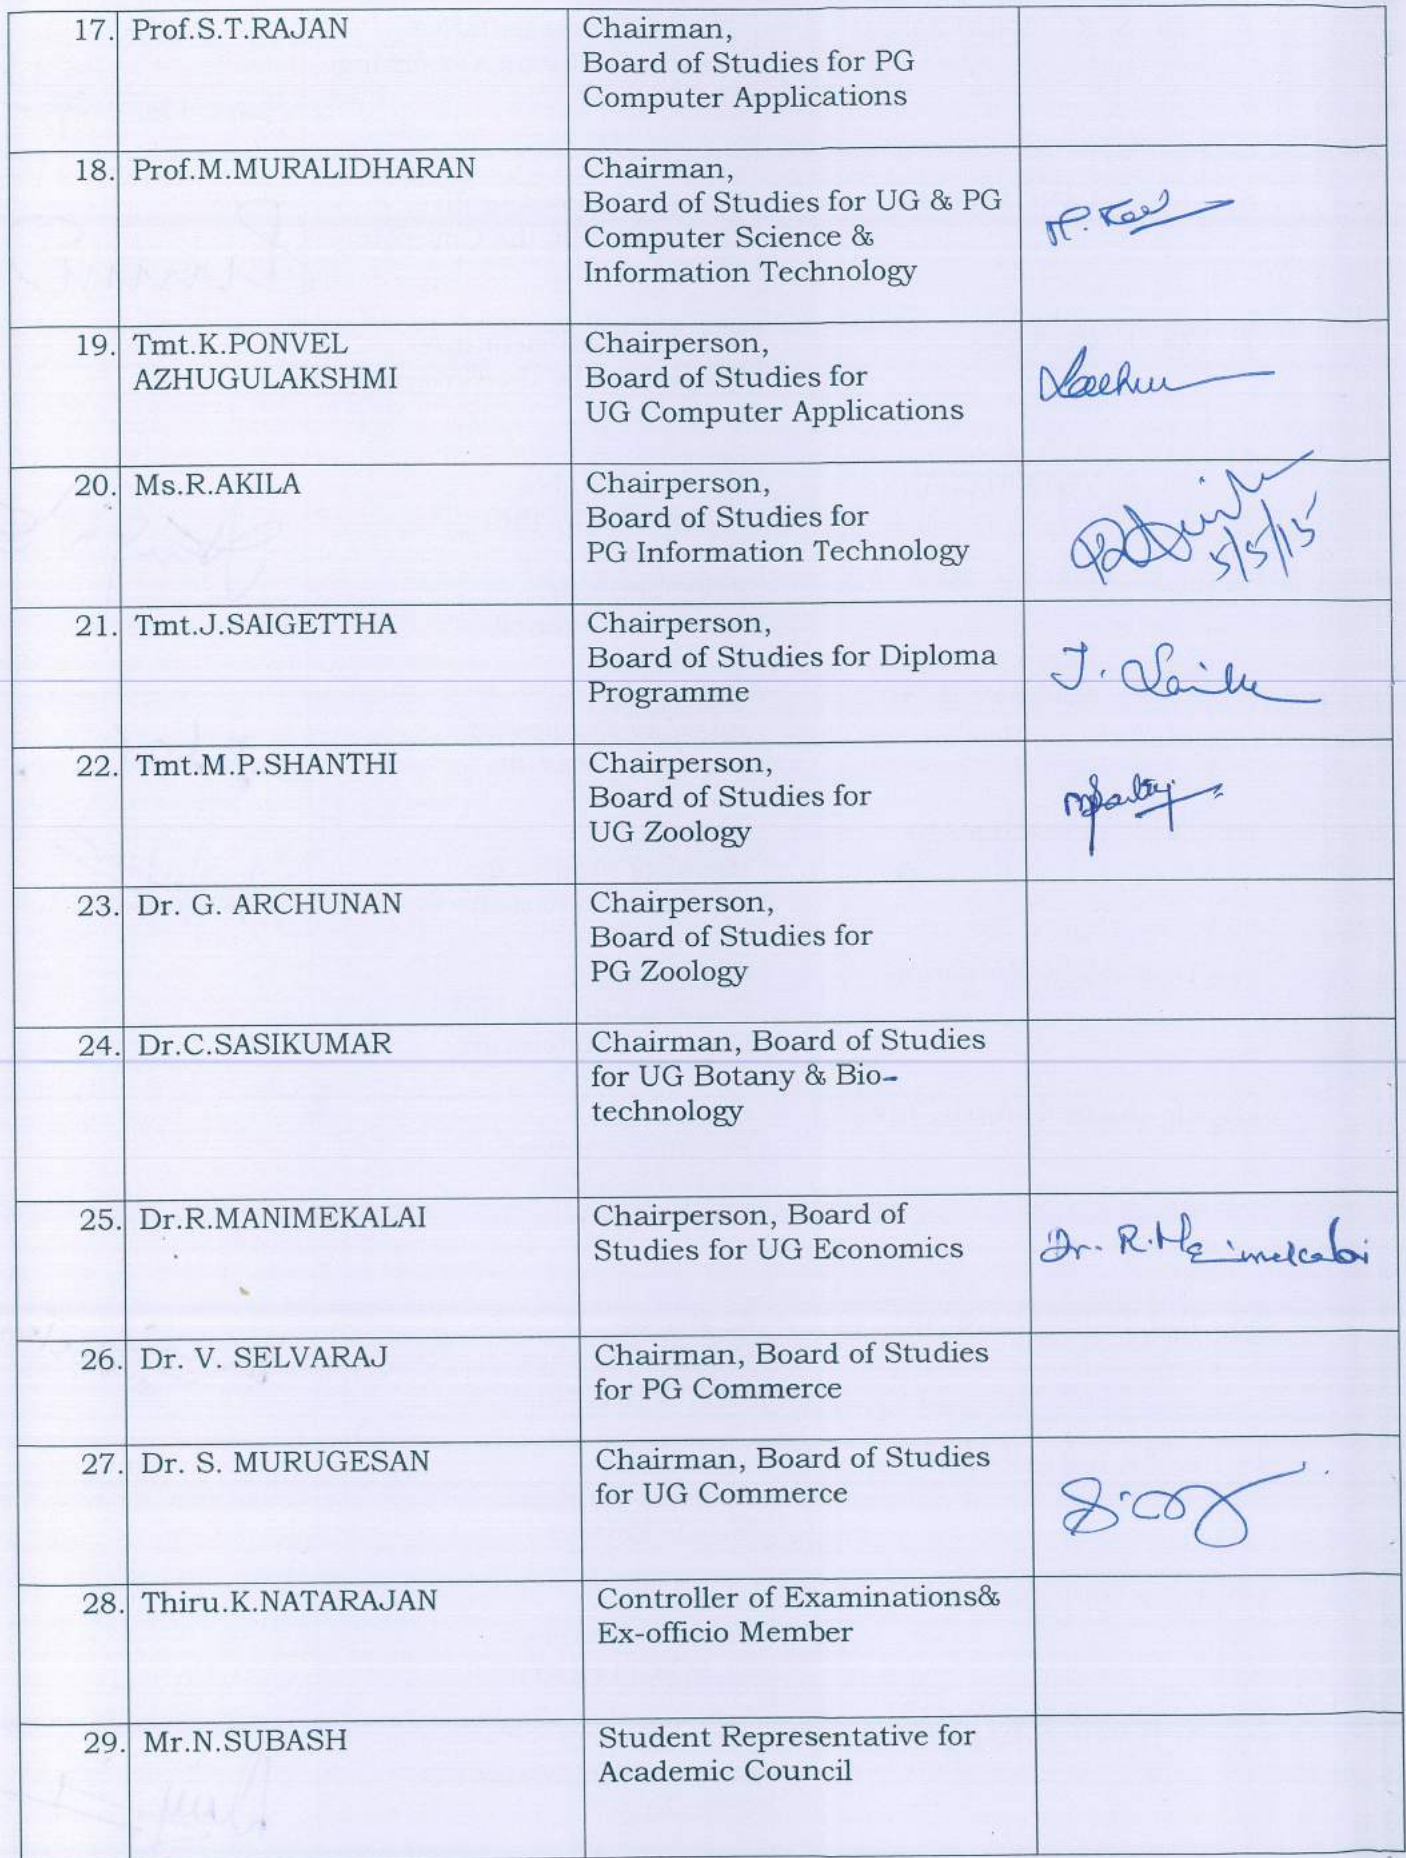 17. Prof.S.T.RAJAN Chairman,
Board of Studies for PG
Computer Applications
18. Prof.M.MURALIDHARAN Chairman,
Board of Studies for UG & PG
Computer Science &
Information Technology
19. Tmt.K.PONVEL Chairperson,
AZHUGULAKSHMI Board of Studies for
UG Computer Applications
20. Ms.R.AKILA Chairperson,
Board of Studies for
PG Information Technology
5/5/15
21. Tmt.J.SAIGETTHA Chairperson,
Board of Studies for Diploma
Programme
J.
22. Tmt.M.P.SHANTHI Chairperson,
Board of Studies for
UG Zoology
23. Dr. G. ARCHUNAN Chairperson,
Board of Studies for
PG Zoology
24. Dr.C.SASIKUMAR Chairman, Board of Studies
for UG Botany & Bio-
technology
25. Dr.R.MANIMEKALAI Chairperson, Board of
Studies for UG Economics Dr. R.
26. Dr. V. SELVARAJ Chairman, Board of Studies
for PG Commerce
27. Dr. S. MURUGESAN Chairman, Board of Studies
for UG Commerce
28. Thiru.K.NATARAJAN Controller of Examinations&
Ex-officio Member
29. Mr.N.SUBASH Student Representative for
Academic Council